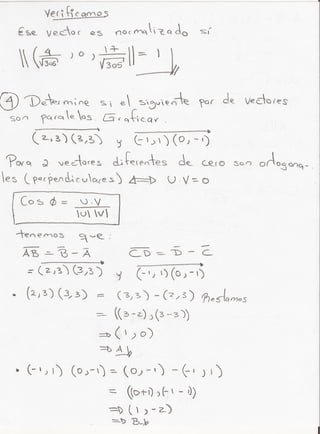 Verificamos
Ese vector es normalizado si
||(4/√305, 0, 17/√305)|| = 1
④ Determine si el siguiente par de vectores
son paralelos. Graficar.
(2,3)(3,3) y (-1,1)(0,-1)
Para 2 vectores diferentes de cero son ortogona-
les (perpendiculares) ⟺ U·V=0
Cos ϕ = U·V / |U| |V|
tenemos que:
AB = B - A CD = D - C
= (2,3)(3,3) y (-1,1)(0,-1)
• (2,3)(3,3) = (3,3) - (2,3) Restamos
= ((3-2),(3-3))
⇒ (1,0)
⇒ A
• (-1,1) (0,-1) = (0,-1) - (-1,1)
= ((0+1),(-1-1))
⇒ (1,-2)
⇒ B